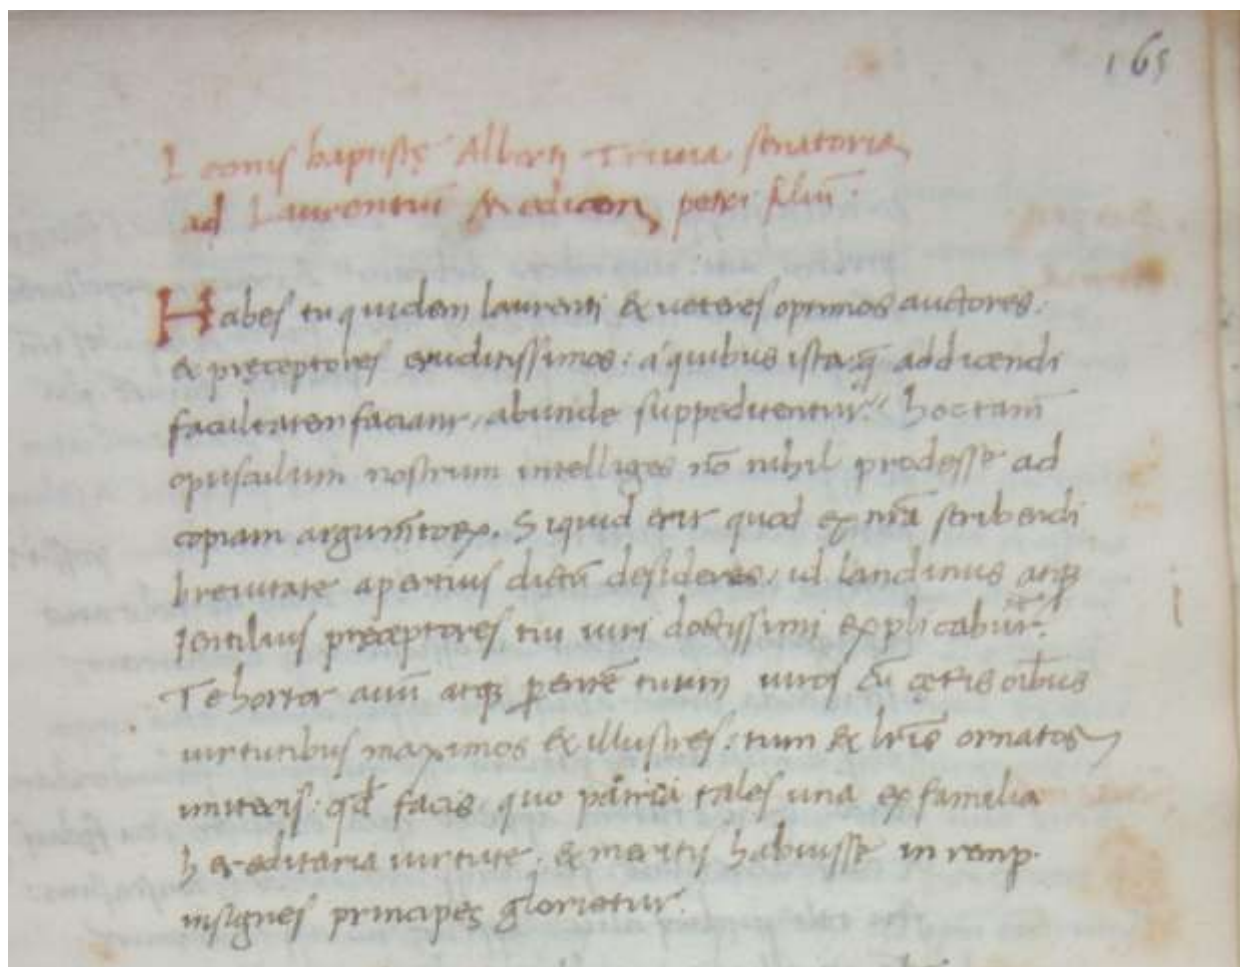 165
Leonis baptistę Alberti Trivia senatoria
ad Laurentiū Medicem petri filiū.
Habes tu quidem laurenti & ueteres optimos auctores.
& pręceptores eruditissimos: a quibus ista: quę ad dicendi
facilitatem faciant, abunde suppeditentur. hoc tam̄
opusculum nostrum intelliges nō nihil prodesse ad
copiam argumētoꝝ. Siquid erit quod ex nr̄a scribendi
breuitate apertius dictū desideres, id landinus atqꝫ
gentilius pręceptores tui uiri doctissimi explicabūt.
Te hortor auū atqꝫ parentē tuum uiros cū cęteris oībus
uirtutibus maximos & illustres: tum & lrīs ornatos
imiteris: qđ facis, quo patria tales una ex familia
hereditaria uirtute, & meritis habuisse in remp.
insignes principes glorietur.